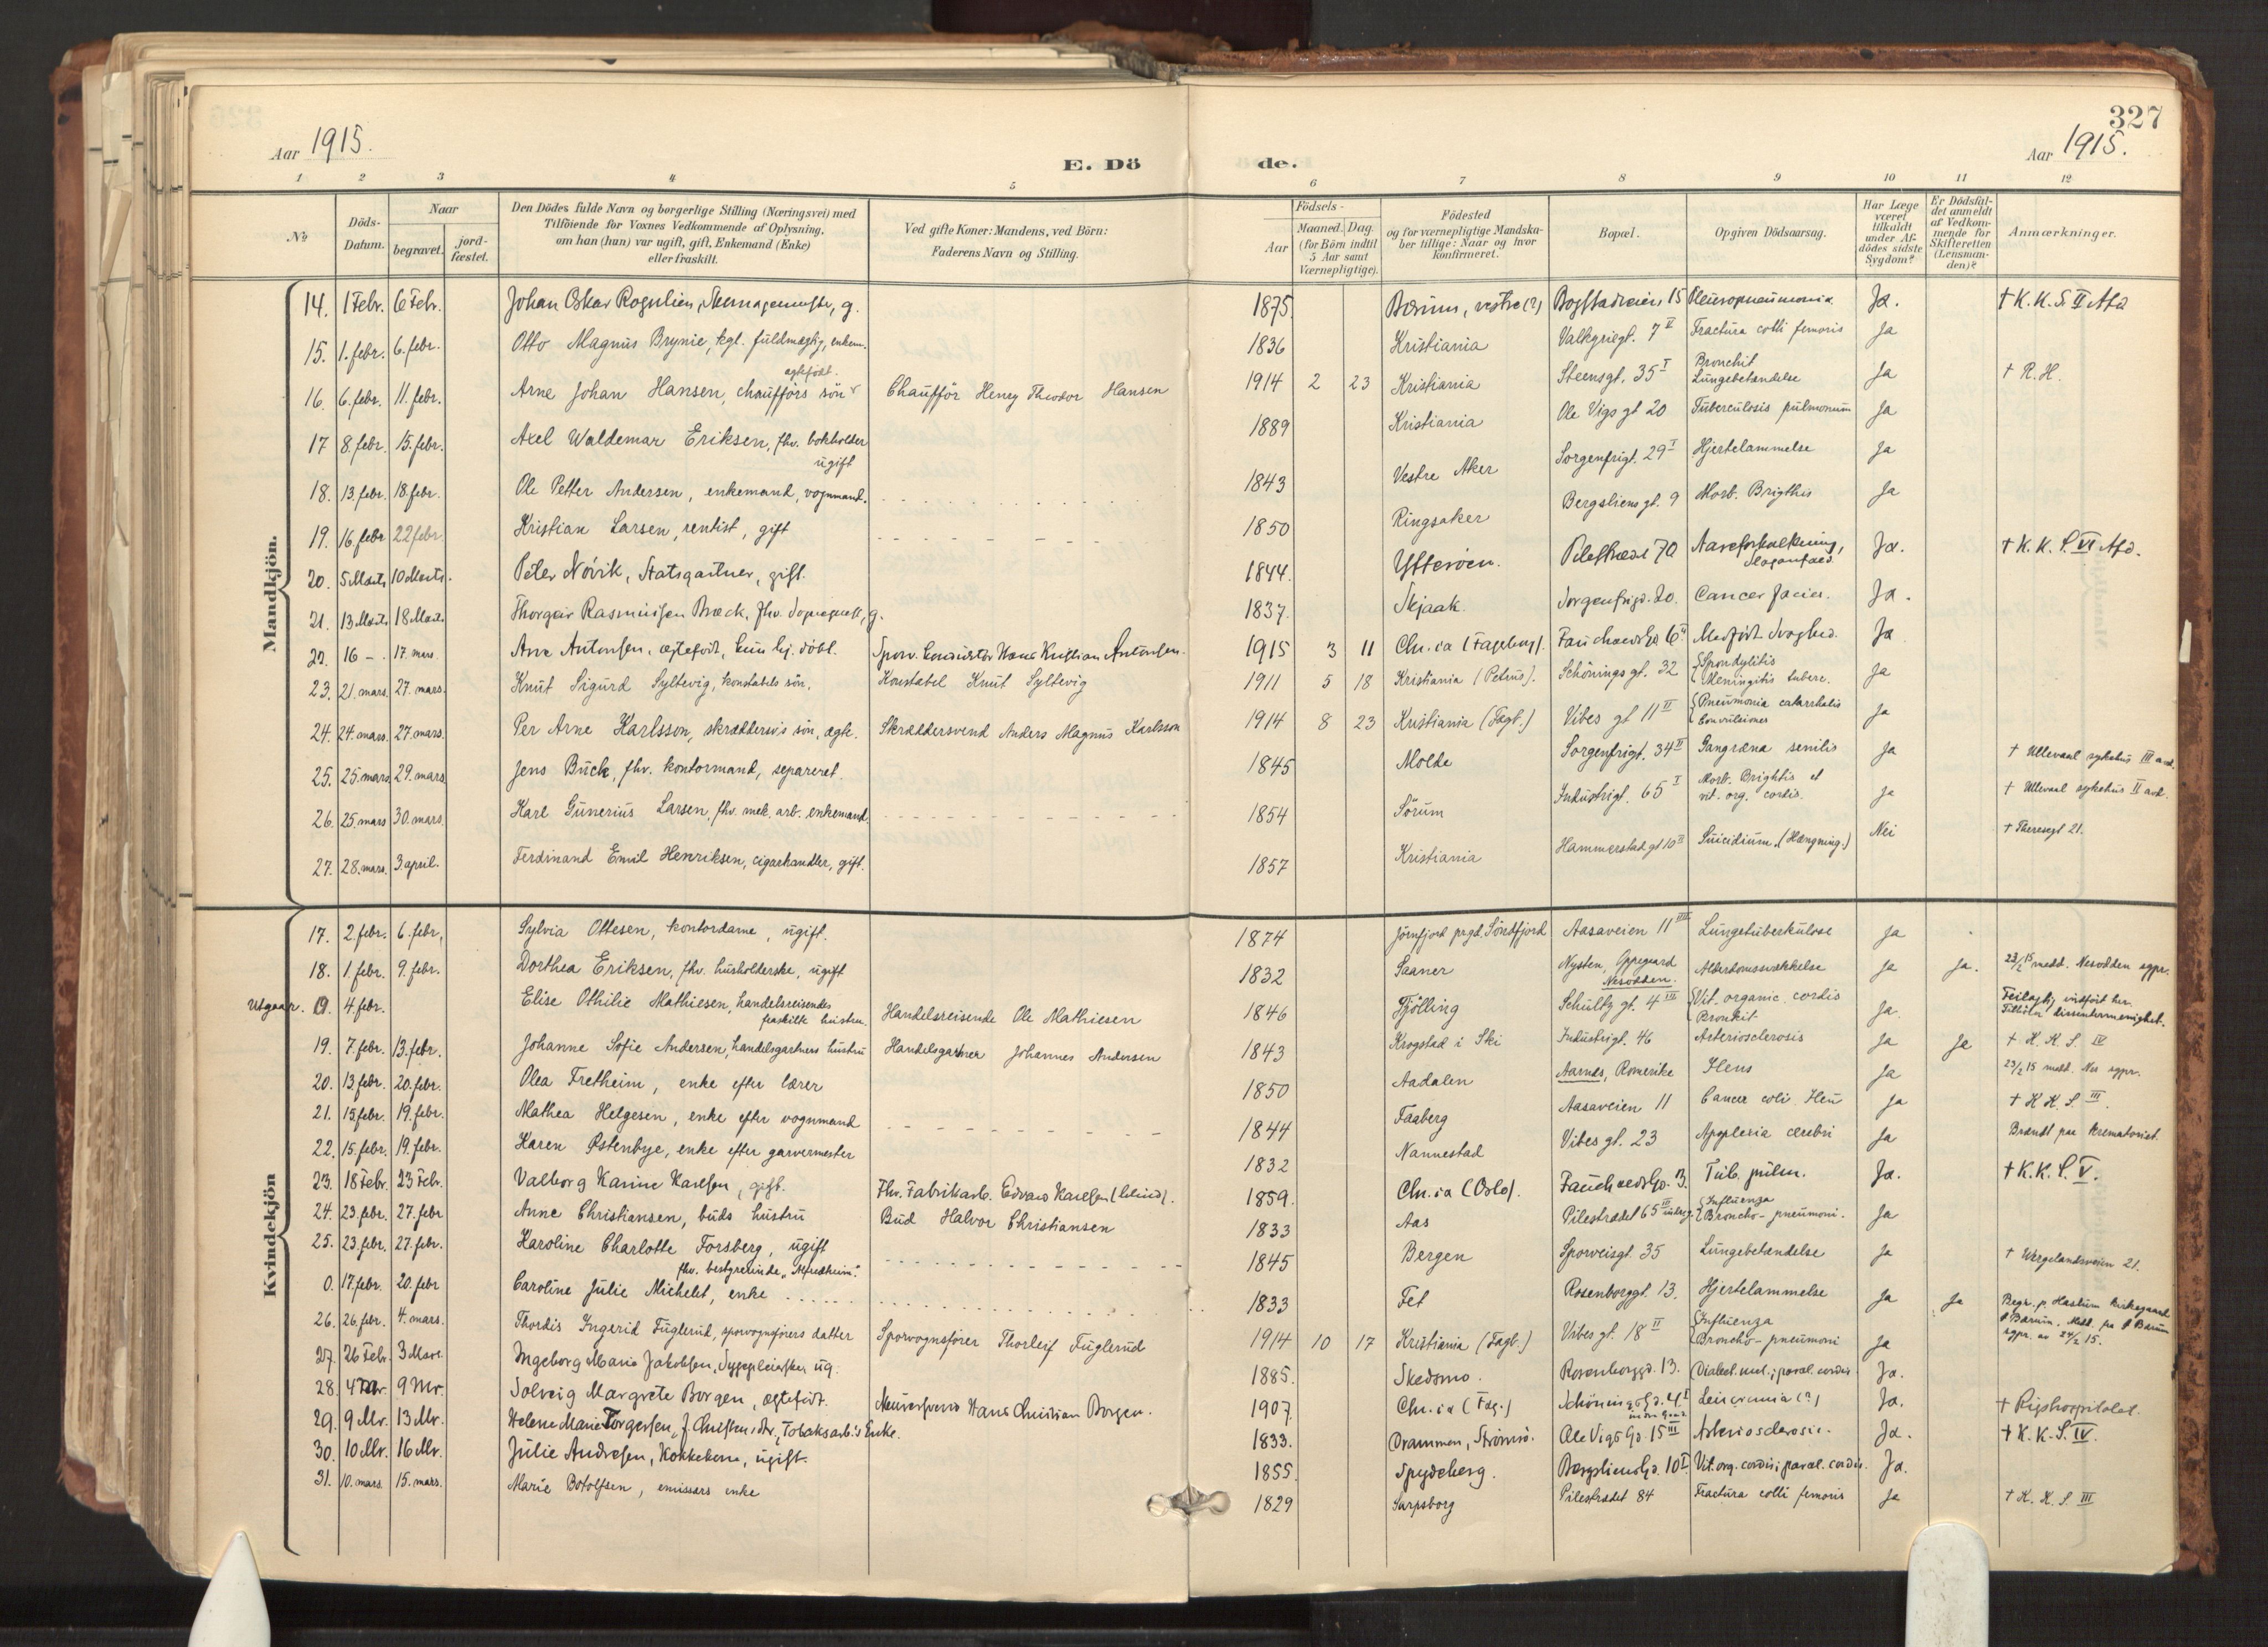 327
Aar 1915.
E. Dö de.
Aar 1915.
1 2 3 4 5 6 7 8 9 10 11 12
No
Döds-Datum.
Naar begravet. jord-fæstet.
Den Dödes fulde Navn og borgerlige Stilling (Næringsvei) med
Tilföiende for Voxnes Vedkommende af Oplysning,
om han (hun) var ugift, gift, Enkemand (Enke)
eller fraskilt.
Ved gifte Koner: Mandens, ved Börn:
Faderens Navn og Stilling.
Födsels-
Aar Maaned. Dag.
(for Börn indtil
5 Aar samt
Værnepligtige).
Födested
og for værnepligtige Mandska-
ber tillige: Naar og hvor
konfirmeret.
Bopæl.
Opgiven Dödsaarsag.
Har Læge
været
tilkaldt
under Af-
dödes sidste
Sygdom?
Er Dödsfal-
det anmeldt
af Vedkom-
mende for
Skifteretten
(Lensman-
den)?
Anmærkninger.
Mandkjön.
14. 1 Febr. 6 Febr. Johan Oskar Rognlien, g. 1875. Bærum, vestre (?) Bogstadveien 15 Pleuropneumonia Ja. † K. K. S. II Afd
15. 1. febr. 6. febr. Otto Magnus Brynie, kgl. fuldmægtig, enkem. 1836 Kristiania Valkyriegt. 7 II Fractura colli femoris Ja
16. 6. febr. 11. febr. Arne Johan Hansen, chaufförs sön ægtefödt. Chaufför Henry Theodor Hansen 1914 2 23 Kristiania Steensgt. 35 I Bronchit Lungebetændelse Ja † R. H.
17 8. febr. 15. febr. Axel Waldemar Eriksen, fhv. bokholder ugift 1889 Kristiania Ole Vigs gt 20 Tuberculosis pulmonum Ja
18. 13. febr. 18. febr. Ole Petter Andersen, enkemand, vognmand. 1843 Vestre Aker Sorgenfrigt. 29 I Hjertelammelse Ja
19. 16. febr 22 febr. Kristian Larsen, rentist, gift 1850 Ringsaker Bergsliens gt. 9 Morb. Brigthis Ja
20. 5 Marts 10 Marts. Peter Növik, Statsgartner, gift. 1844. Ytteröen. Pilestrædet 70 Aareforkalkning, Slaganfald. Ja. † K. K. S. VI Afd.
21. 13 Marts 18 Marts. Thorgeir Rasmussen Bræck, fhv. Sogneprest, g. 1837. Skjaak. Sorgenfrigd. 20. Cancer faciei. Ja.
22. 16 - . 17. mars. Arne Antonsen, ægtefödt, kun hj. döbt. Sporv. konduktör Hans Kristian Antonsen. 1915 3 11 Chr.ia (Fagerborg). Fauchaldsgd. 6 II Medfödt Svaghed. Ja
23. 21. mars. 27. mars. Knut Sigurd Syltevig, konstabels sön. Konstabel Knut Syltevig 1911 5 18 Kristiania (Petrus). Schönings gt. 32 Spondylitis Meningitis tuberc. Ja
24. 24. mars. 27. mars. Per Arne Karlsson, skræddersv's sön, ægte. Skræddersvend Anders Magnus Karlsson 1914 8 23 Kristiania (Fagb.) Vibes gt 11 II Pneumonia catarrhalis Convulsiones Ja
25. 25. mars. 29. mars Jens Buck, fhv. kontormand, separeret. 1845 Molde Sorgenfrigt. 34 II Gangræna senilis Ja † Ullevaal sykehus III avd.
26. 25. mars 30. mars. Karl Gunerius Larsen, fhv. mek. arb. enkemand. 1854 Sörum Industrigt. 65 I Morb. Brightis et vit. org. cordis. Ja † Ullevaal sykehus II avd.
27. 28. mars. 3. april. Ferdinand Emil Henriksen, cigarhandler, gift. 1857 Kristiania Hammerstad gt 10 II Suicidium. (Hængning.) Nei † Theresegt 21.
Kvindekjön
17. 2. febr. 6. febr. Sylvia Ottesen, kontordame, ugift. 1874 Jörnfjord prgd. Söndfjord Aasaveien 11 III Lungetuberkulose Ja
18. 1. febr. 9. febr. Dorthea Eriksen, fhv. husholderske, ugift 1832 Saaner Nysten, Oppegaard Nesodden. Alderdomssvækkelse Ja Ja. 23/2 15 medd. Nesodden sgpr.
Utgaar. 19. 4. febr. Elise Othilie Mathiesen, handelsreisendes fraskilte hustru. Handelsreisende Ole Mathiesen 1846 Tjölling Schultz gt. 4 III Vit. organic. cordis Bronkit Ja. Feilagtig indfört her. Tilhörer dissentermenighet.
19. 7. febr. 13. febr. Johanne Sofie Andersen, handelsgartners hustru Handelsgartner Johannes Andersen 1843 Krogstad i Ski Industrigt. 46 Arteriosclerosis Ja Ja † K. K. S. IV
20. 13. febr. 20. febr. Olea Fretheim, enke efter lærer 1850 Aadalen Aarnes, Romerike Ileus Ja 23/2 15 medd. Nes sgpr.
21. 15 febr. 19. febr. Mathea Helgesen, enke efter vognmand 1844 Faaberg Aasaveien 11 Cancer coli Ja † K. K. S. III.
22. 15. febr. 19. febr. Karen Østenbye, enke efter garvermester 1832 Nannestad Vibes gt. 23 Apoplexia cerebri Ja Brændt paa Krematoriet.
23. 18 Febr. 23 Febr. Valborg Karine Karlsen, gift. Fhv. Fabrikarb. Edvard Karlsen (blind). 1859. Chr.ia (Oslo). Fauchaldsgd. 13. Tub. pulm. Ja. † K. K. S. V.
24. 23. febr. 27. febr Anne Christiansen, buds hustru Bud Halvor Christiansen 1833 Aas Pilestrædet 65 III Influenza Broncho-pneumoni. Ja
25. 23. febr. 27. febr. Karoline Charlotte Forsberg, ugift fhv. bestyrerinde „Alfredheim". 1845 Bergen Sporveisgt. 35 Lungebetændelse Ja † Wergelandsveien 21.
0. 17. febr. 20. febr Caroline Julie Michelet, enke 1833 Fet Rosenborggt. 13. Hjertelammelse Ja Ja Begr. p. Haslum kirkegaard Bærum. Medd. fra Bærum sgpr. av 24/2 15.
26. 26. febr. 4. mars. Thordis Ingerid Fuglerud, sporvognsförers datter Sporvognsförer Thorleif Fuglerud 1914 10 17 Kristiania (Fagb.) Vibes gt. 18 II Influenza Broncho-pneumoni Ja
27. 26 Febr. 3 Mars Ingeborg Marie Jakobsen, Sygepleierske, ug. 1885. Skedsmo. Rosenborggd. 13. Ja.
28. 4 Mr. 9 Mr. Solveig Margrete Borgen, ægtefödt. Murersvend Hans Christian Borgen. 1907. Chr.ia (Fag.) Schöningsgd. 4 I Leucæmia (?) Ja. † Rigshospitalet.
29. 9 Mr. 13 Mr. Helene Marie Torgersen, f. Christensdtr., Tobaksarb.'s Enke. 1833. Drammen, Strömsö. Ole Vigs Gd. 15 III Arteriosclerosis. Ja. † K. K. S. IV.
30. 10 Mr. 16 Mr. Julie Andresen, Kokkekone, ugift. 1855. Spydeberg. Bergsliensgd. 10 I. Vit. org. cordis; paral. cordis. Ja.
31. 10. mars. 15. mars. Marie Botolfsen, emissærs enke 1829 Sarpsborg Pilestrædet 84 Fractura colli femoris Ja † K. K. S. III